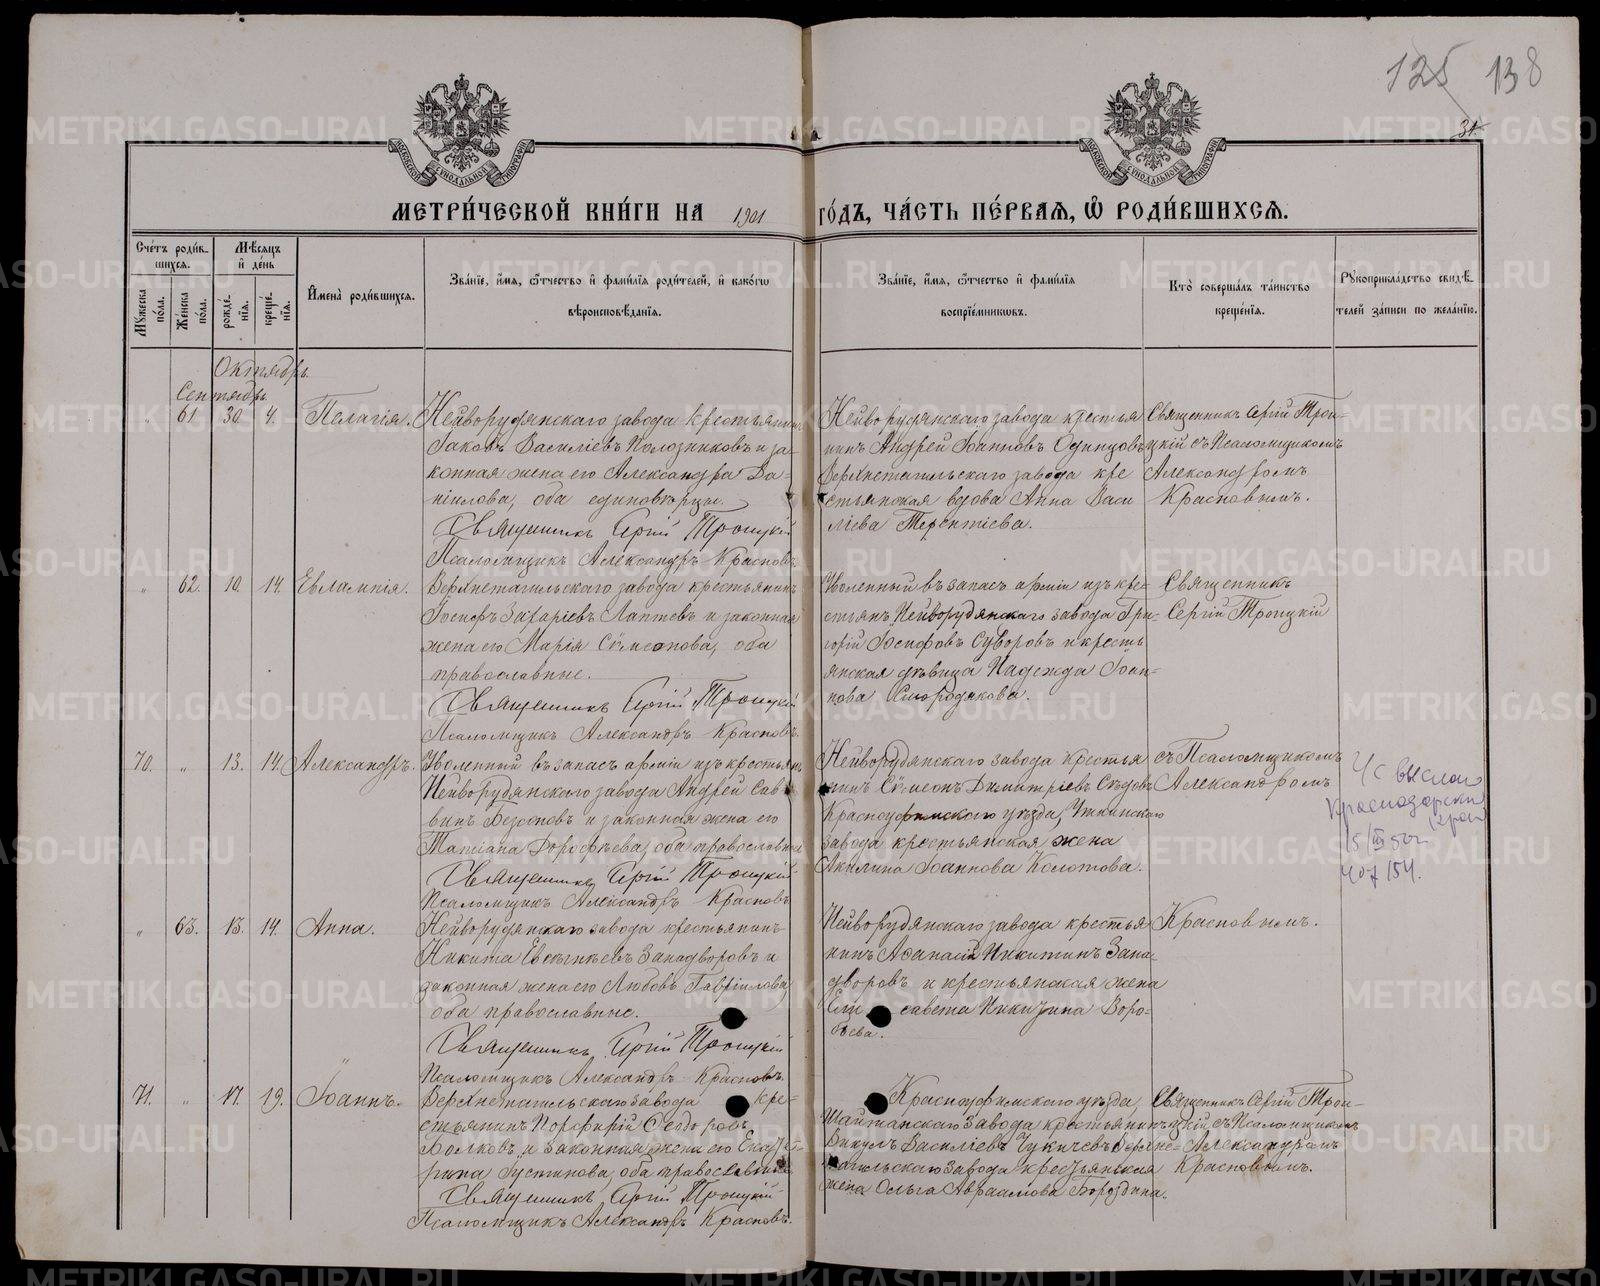 125 138
31.
МЕТРИ́ЧЕСКОЙ КНИ́ГИ НА 1901 ГО́ДЪ, ЧА́СТЬ ПЕ́РВАЯ, Ѽ РОДИ́ВШИХСЯ.
Сче́тъ роди́в-
шихся.
Мꙋ́жеска по́ла.
Же́нска по́ла.
Мѣ́сяцъ
и҆ де́нь
рожде́-
нїѧ.
креще́-
нїѧ.
И҆мена̀ роди́вшихся.
Зва́нїе, и҆́мѧ, ѻ҆́тчество и҆ фами́лїѧ роди́телей, и҆ како́гѡ
вѣроисповѣ́данїѧ.
Зва́нїе, и҆́мѧ, ѻ҆́тчество и҆ фами́лїѧ
воспрїе́мникѡвъ.
Кто̀ соверша́лъ та́инство
креще́нїѧ.
Рꙋкоприкла́дство свидѣ́-
телей за́писи по жела́нїю.
Октябрь.
Сентябрь
" 61 30. 4. Пелагія.
Нейворудянскаго завода крестьянинъ
Іаковъ Василіевъ Полозниковъ и за-
конная жена его Александра Да-
ніилова, оба единовѣрцы.
Священникъ Сергій Троицкій
Псаломщикъ Александръ Красновъ.
Нейворудянскаго завода крестья
нинъ Андрей Іоанновъ Одинцовъ
Верхнетагильскаго завода кре
стьянская вдова Анна Васи
ліева Терентіева.
Священникъ Сергій Трои-
цкій съ Псаломщикомъ
Александромъ
Красновымъ.
" 62. 10. 14. Евлампія.
Верхнетагильскаго завода крестьянинъ
Іосифъ Захаріевъ Лаптевъ и законная
жена его Марія Сѵмеонова, оба
православные.
Священникъ Сергій Троицкій
Псаломщикъ Александръ Красновъ.
Уволенный въ запасъ арміи изъ кре-
стьянъ Нейворудянскаго завода Гри-
горій Іосифовъ Суворовъ и кресть
янская дѣвица Надежда Іоан-
нова Смородякова.
Священникъ
Сергій Троицкій
70. " 13. 14. Александръ.
Уволенный въ запасъ арміи изъ крестьянъ
Нейворудянскаго завода Андрей Сав-
винъ Безсоновъ и законная жена его
Татіана Дороѳѣева, оба православные
Священникъ Сергій Троицкій
Псаломщикъ Александръ Красновъ
Нейворудянскаго завода крестья
нинъ Сѵмеонъ Димитріевъ Сѣдовъ
Красноуфимскаго уѣзда, Уткинскаго
завода крестьянская жена
Акилина Іоаннова Колотова.
съ Псаломщикомъ
Александромъ
Ч/с выслан
Краснодарский
край
15/III 50г
407/154.
" 63. 13. 14. Анна.
Нейворудянскаго завода крестьянинъ
Никита Евсигнѣевъ Западворовъ и
законная жена его Любовь Гавріилова
оба православные.
Священникъ Сергій Троицкій
Псаломщикъ Александръ Красновъ.
Нейворудянскаго завода крестья
нинъ Аѳанасій Никитинъ Запа-
дворовъ и крестьянская жена
Елисавета Никитина Воро-
бьева.
Красновымъ.
71. " 17. 19. Іоаннъ.
Верхнетагильскаго завода кре-
стьянинъ Порфирій Ѳеодоровъ
Волковъ и законная жена его Екате-
рина Іустинова, оба православные
Священникъ Сергій Троицкій
Псаломщикъ Александръ Красновъ.
Красноуфимскаго уѣзда,
Шайтанскаго завода крестьянинъ
Викулъ Василіевъ Чукичевъ Верхне-
тагильскаго завода крестьянская
жена Ольга Авраамова Бороздина.
Священникъ Сергій Трои-
цкій съ Псаломщикомъ
Александромъ
Красновымъ.
METRIKI.GASO-URAL.RU